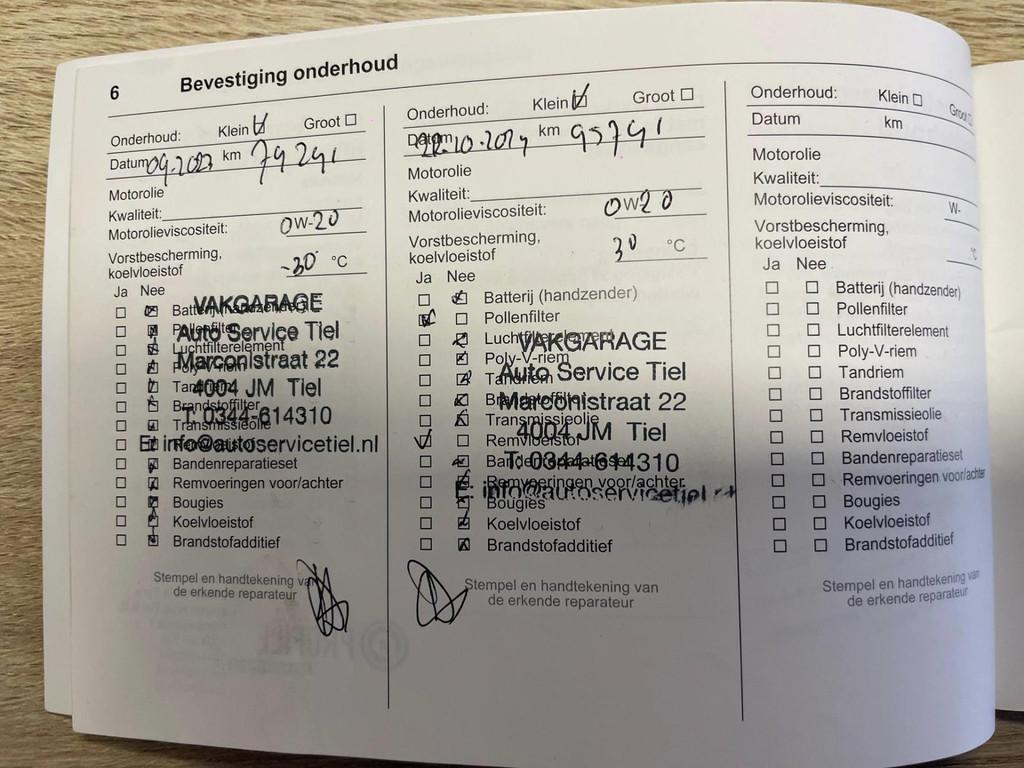 6 Bevestiging onderhoud
Onderhoud: Klein Groot
Datum 09.2023 km 79291
Motorolie
Kwaliteit:
Motorolieviscositeit: 0W-20
Vorstbescherming,
koelvloeistof -30 °C
Ja Nee
Batterij (handzender)
Pollenfilter
Luchtfilterelement
Poly-V-riem
Tandriem
Brandstoffilter
Transmissieolie
Remvloeistof
Bandenreparatieset
Remvoeringen voor/achter
Bougies
Koelvloeistof
Brandstofadditief
VAKGARAGE
Auto Service Tiel
Marconistraat 22
4004 JM Tiel
T: 0344-614310
E: info@autoservicetiel.nl
Stempel en handtekening van
de erkende reparateur
Onderhoud: Klein Groot
Datum 22.10.2024 km 95791
Motorolie
Kwaliteit:
Motorolieviscositeit: 0W20
Vorstbescherming,
koelvloeistof 30 °C
Ja Nee
Batterij (handzender)
Pollenfilter
Luchtfilterelement
Poly-V-riem
Tandriem
Brandstoffilter
Transmissieolie
Remvloeistof
Bandenreparatieset
Remvoeringen voor/achter
Bougies
Koelvloeistof
Brandstofadditief
VAKGARAGE
Auto Service Tiel
Marconistraat 22
4004 JM Tiel
T: 0344-614310
E: info@autoservicetiel
Stempel en handtekening van
de erkende reparateur
Onderhoud: Klein Groot
Datum km
Motorolie
Kwaliteit:
Motorolieviscositeit: W-
Vorstbescherming,
koelvloeistof °C
Ja Nee
Batterij (handzender)
Pollenfilter
Luchtfilterelement
Poly-V-riem
Tandriem
Brandstoffilter
Transmissieolie
Remvloeistof
Bandenreparatieset
Remvoeringen voor/achter
Bougies
Koelvloeistof
Brandstofadditief
Stempel en handtekening van
de erkende reparateur